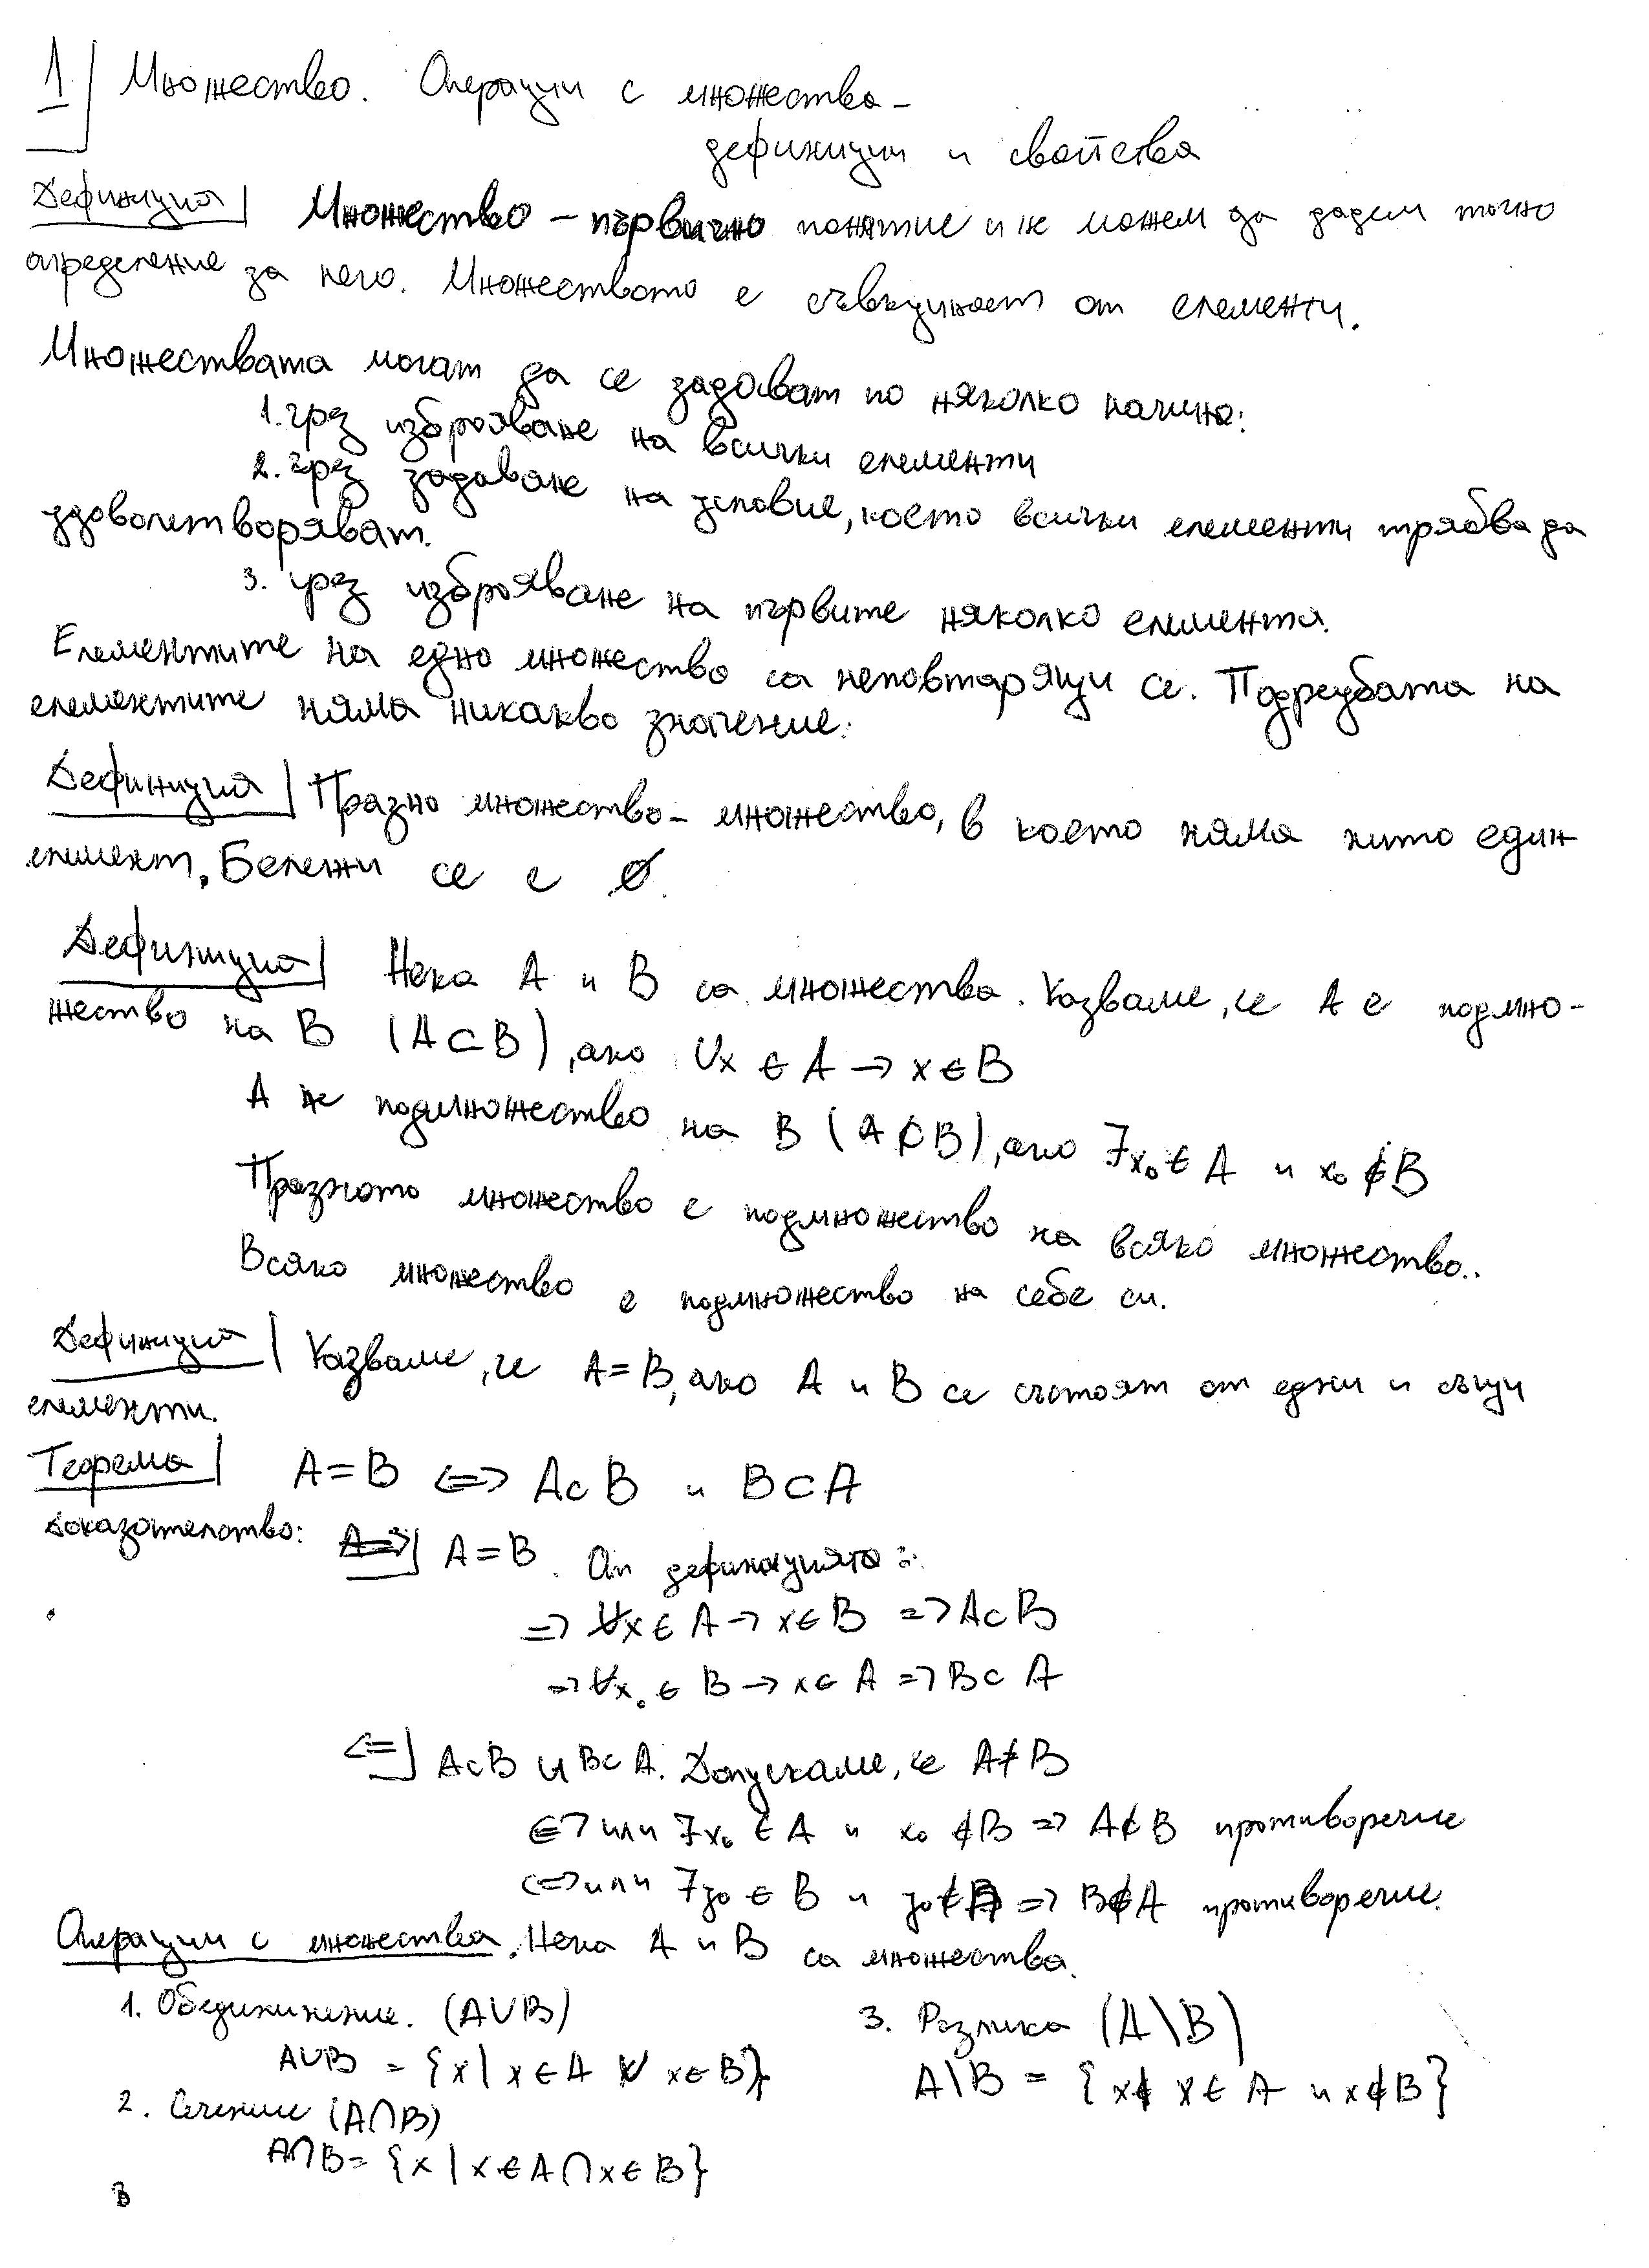 1 Множество. Операции с множества -
дефиниции и свойства
Дефиниция | Множество – първично понятие и не можем да дадем точно
определение за него. Множеството е съвкупност от елементи.
Множествата могат да се задават по няколко начина:
1. чрез изброяване на всички елементи
2. чрез задаване на условие, което всички елементи трябва да
удовлетворяват.
3. чрез изброяване на първите няколко елемента.
Елементите на едно множество са неповтарящи се. Подредбата на
елементите няма никакво значение.
Дефиниция | Празно множество – множество, в което няма нито един
елемент. Бележи се с ∅.
Дефиниция | Нека A и B са множества. Казваме, че A е подмно-
жество на B (A⊂B), ако ∀x ∈ A → x ∈ B
A не подмножество на B (A⊄B), ако ∃x₀ ∈ A и x₀ ∉ B
Празното множество е подмножество на всяко множество..
Всяко множество е подмножество на себе си.
Дефиниция | Казваме, че A=B, ако A и B се състоят от едни и същи
елементи.
Теорема | A=B <=> A⊂B и B⊂A
Доказателство: =>] A=B. От дефиницията :
=> ∀x ∈ A → x ∈ B => A⊂B
=> ∀x ∈ B → x ∈ A => B⊂A
<=] A⊂B и B⊂A. Допускаме, че A≠B
<=> или ∃x₀ ∈ A и x₀ ∉ B => A⊄B противоречие
<=> или ∃y₀ ∈ B и y₀ ∉ A => B⊄A противоречие.
Операции с множества. Нека A и B са множества.
1. Обедининение. (A∪B)
A∪B = {x | x ∈ A ∨ x ∈ B}
2. Сечение (A∩B)
A∩B = {x | x ∈ A ∩ x ∈ B}
3. Разлика (A\B)
A\B = {x | x ∈ A и x ∉ B}
В